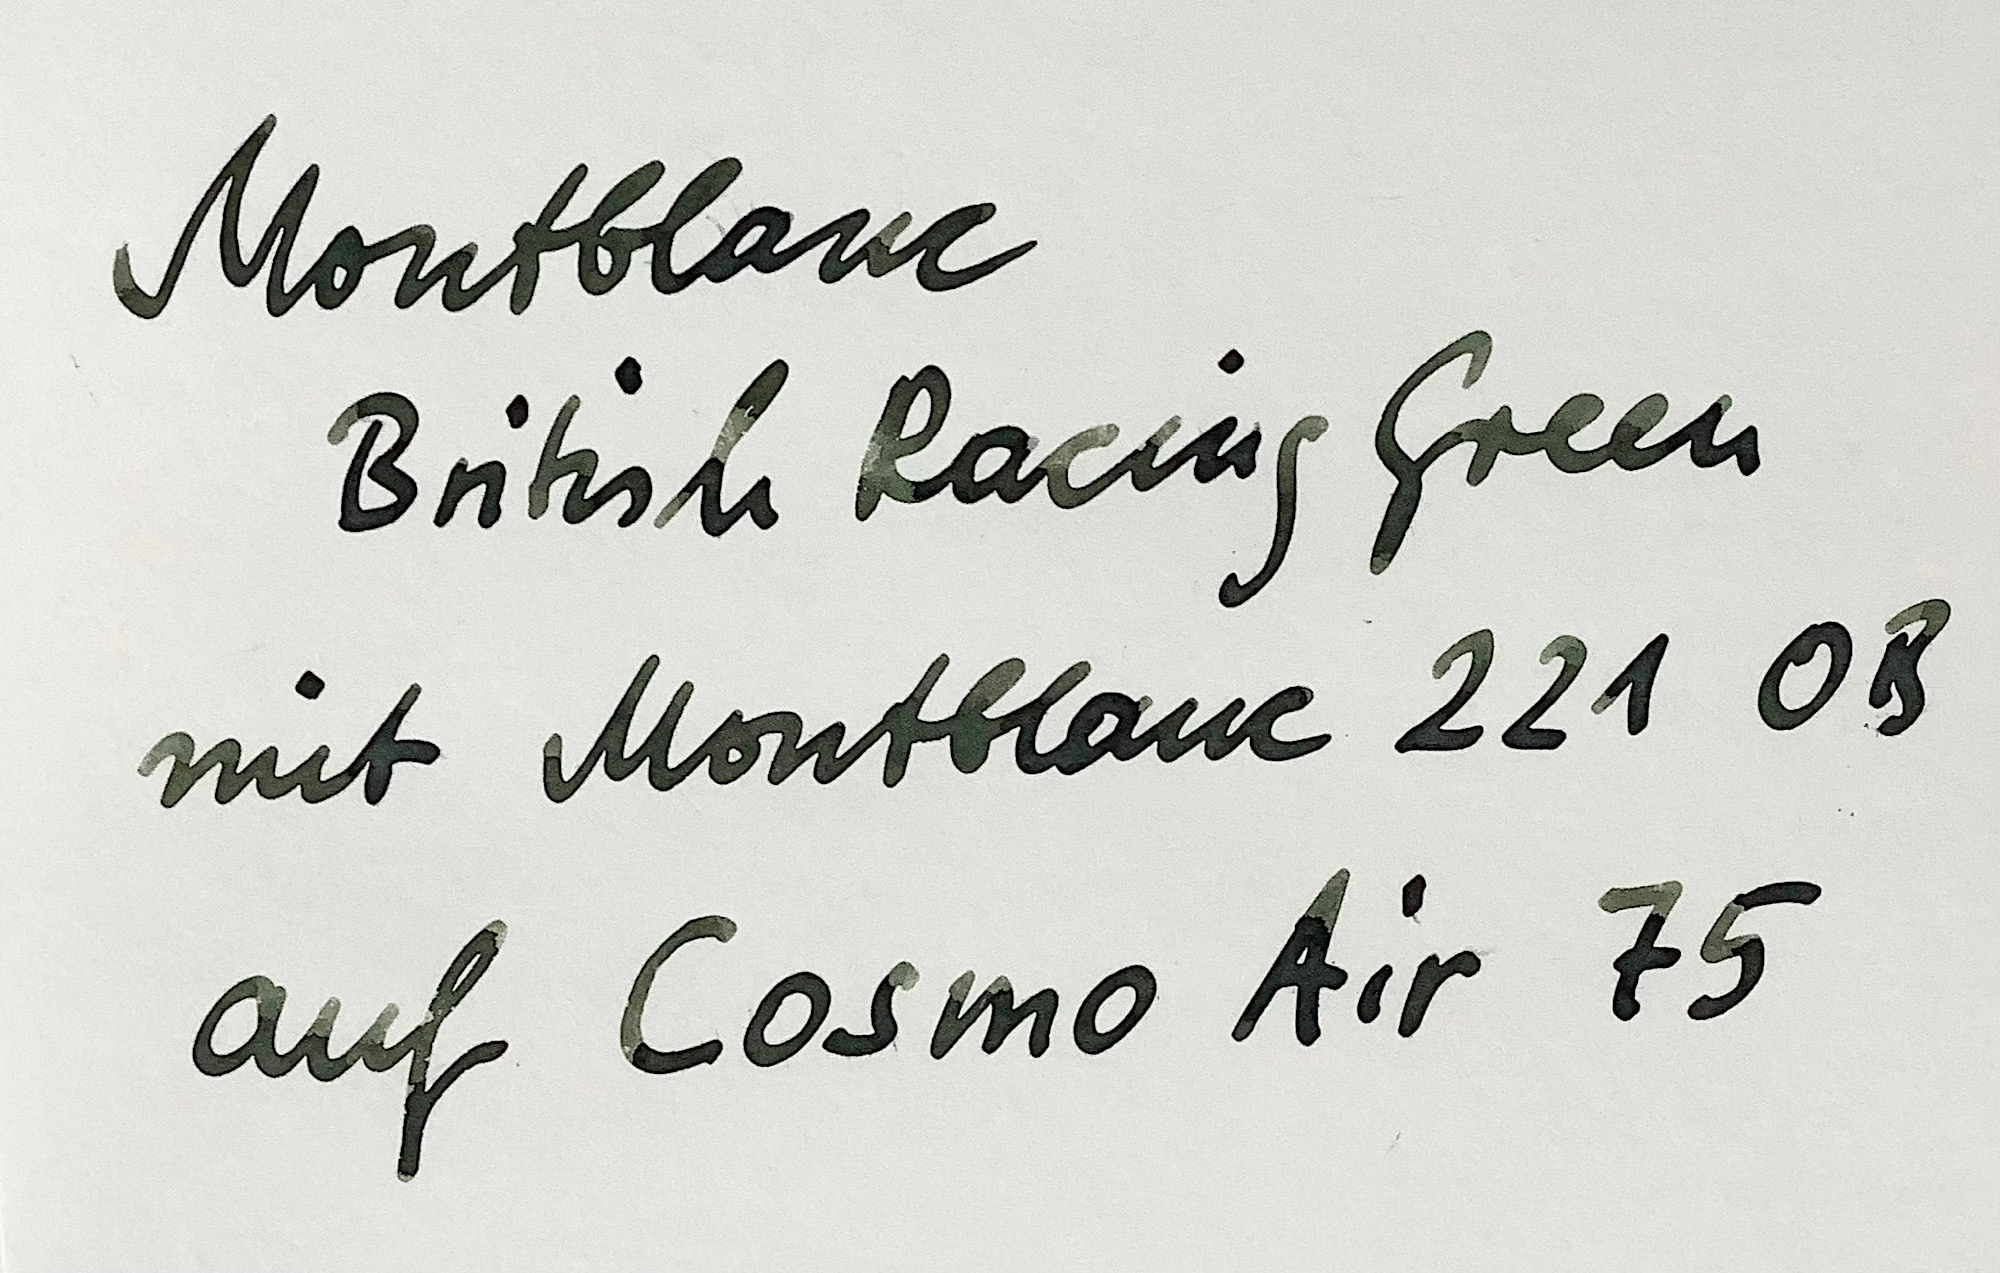 Montblanc
British Racing Green
mit Montblanc 221 OB
auf Cosmo Air 75